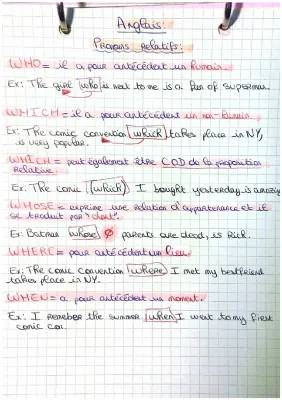 Anglais:
Pronoms Relatifs:
WHO = il a pour antécédent un humain.
Ex: The girl who is next to me is a fan of superman.
WHICH = il a pour antécédent un non-humain.
Ex: The comic convention which takes place in NY,
is very popular.
WHICH = peut également être COD de la proposition
relative.
Ex: The comic (which) I bought yesterday is amazing
WHOSE = exprime une relation d'appartenance et il
se traduit par "dont".
Ex: Batman whose Ø parents are dead, is Rich.
WHERE = pour antécédent un lieu.
Ex: The comic convention where I met my bestfriend
takes place in NY.
WHEN = a pour antécédent un moment.
Ex: I remeber the summer when I went to my first
comic con.